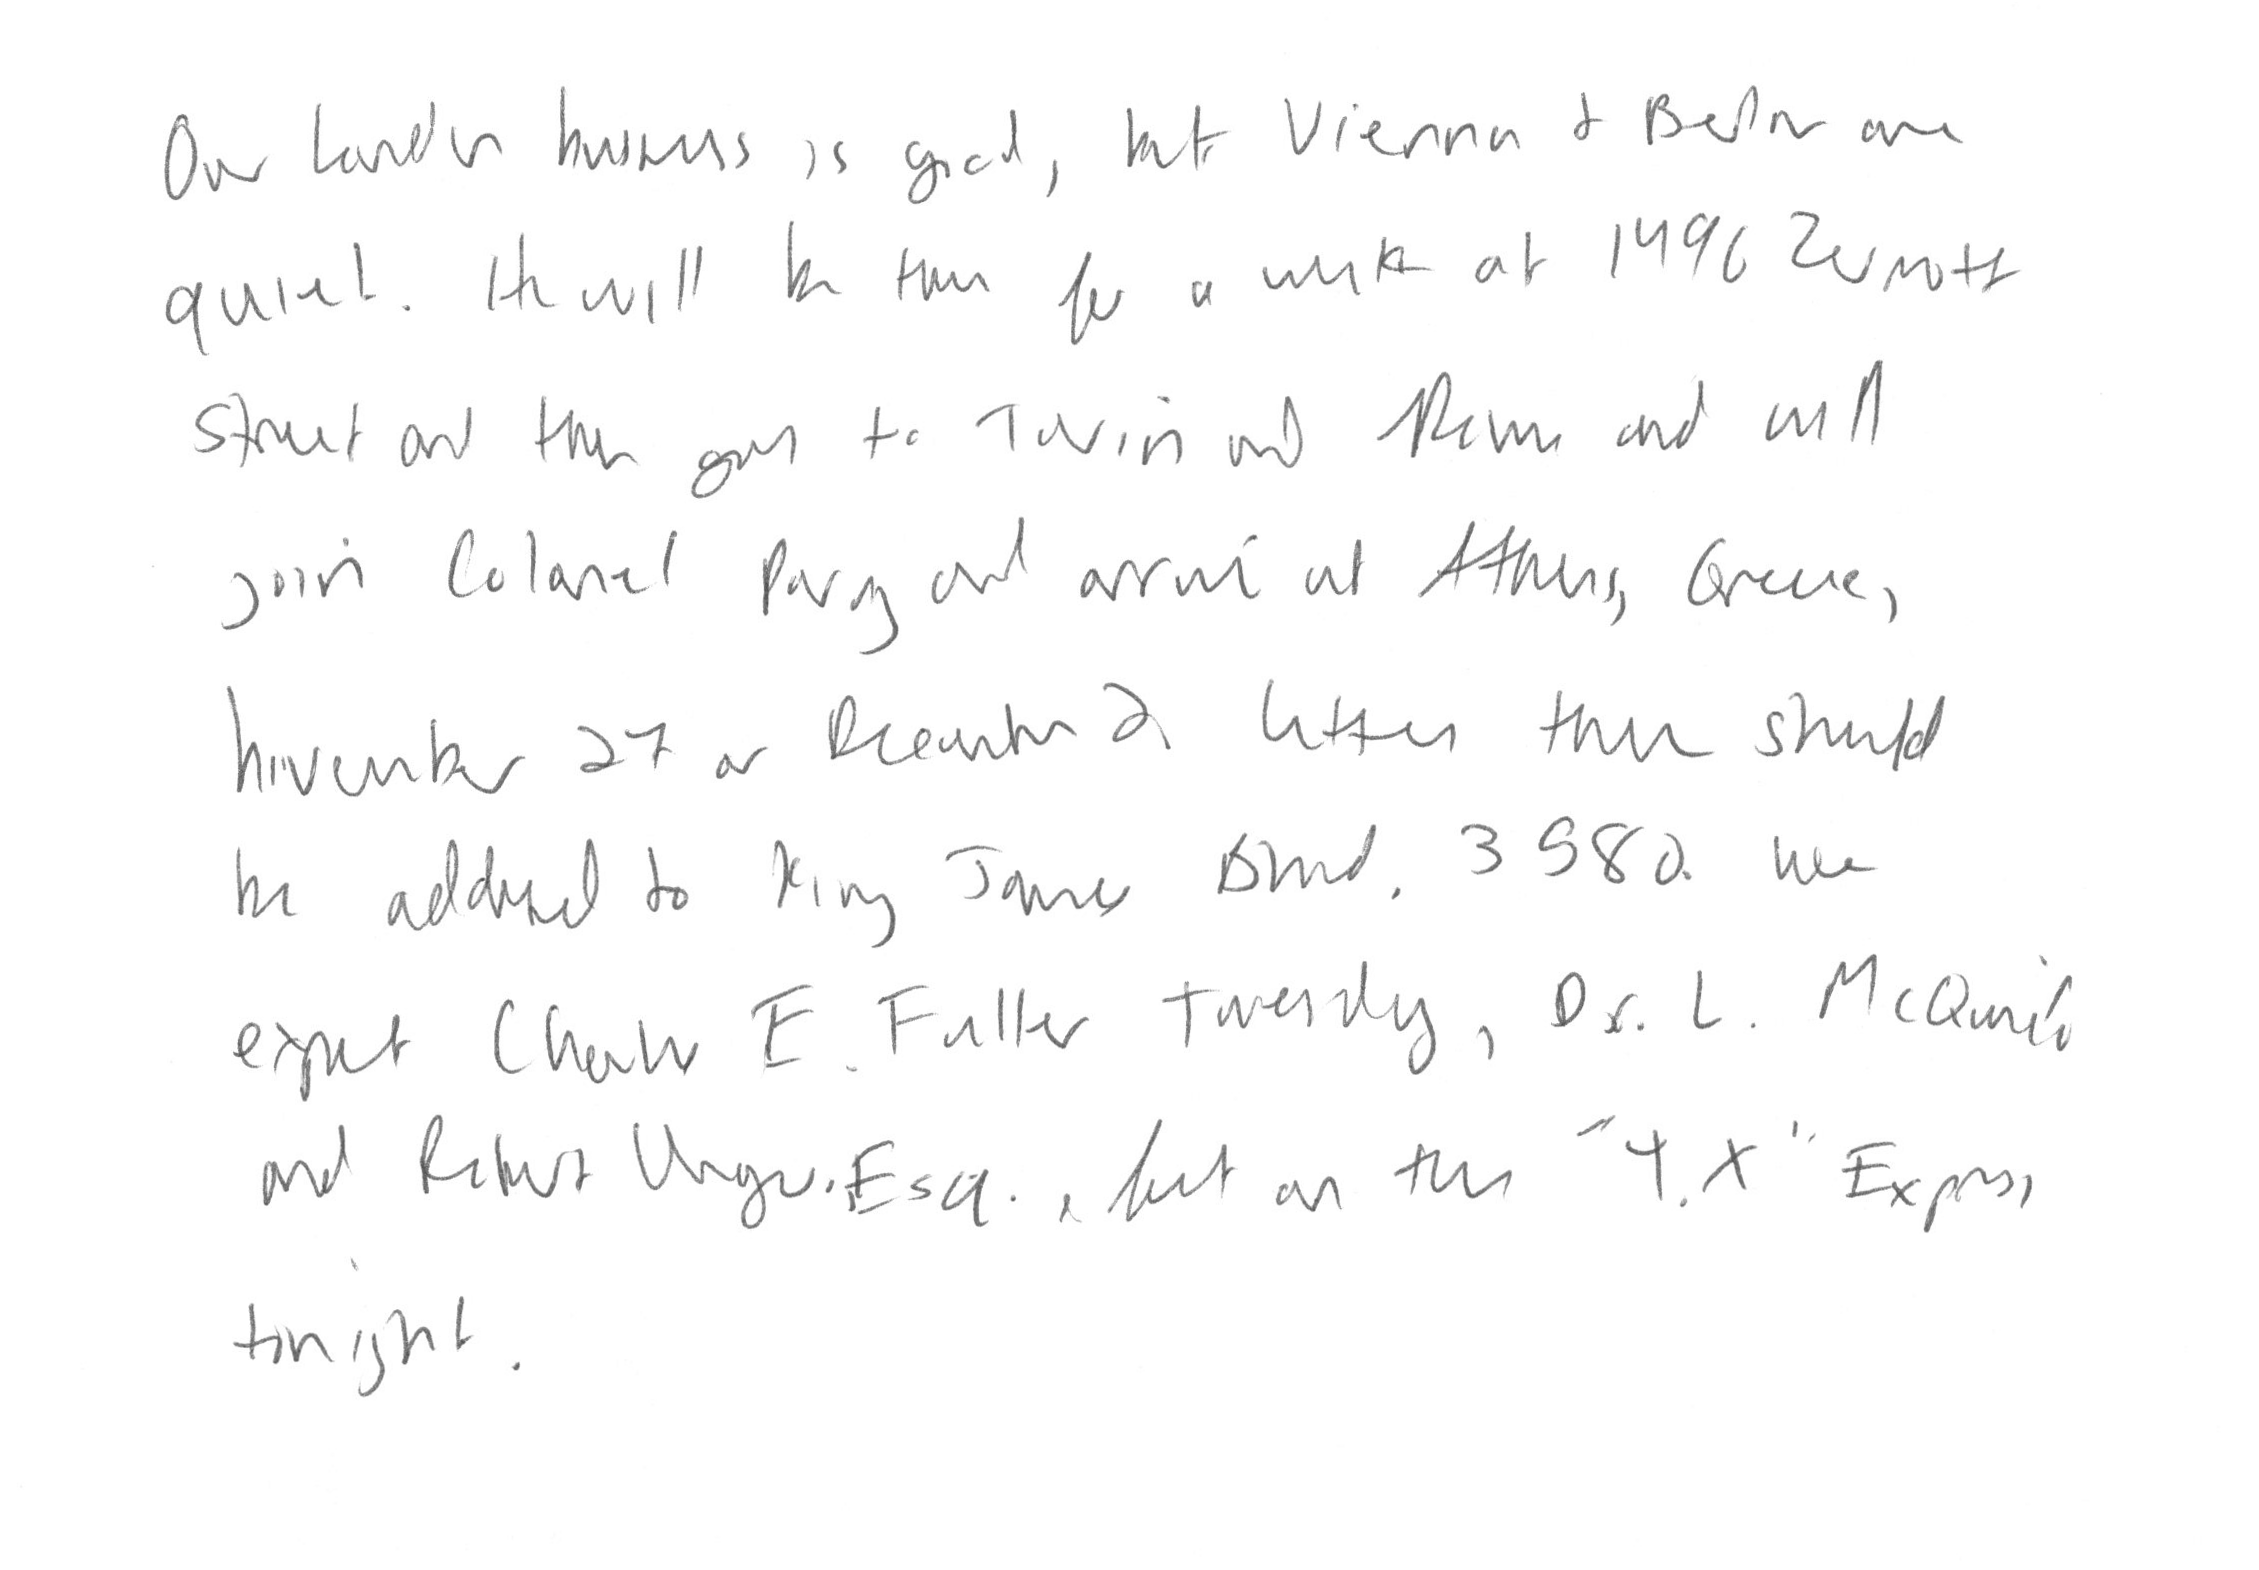 Our London business is good, but Vienna & Berlin are
quiet. He will be there for a week at 1496 Zermott
Street and then goes to Turin and Rome and will
join Colonel Parry and arrive at Athens, Greece,
November 27 or December 2. Letters there should
be addressed to King James Blvd. 3580. We
expect Charles E. Fuller Tuesday, Dr. L. McQuaid
and Robert Unger, Esq., left on the "Y.X" Express
tonight.